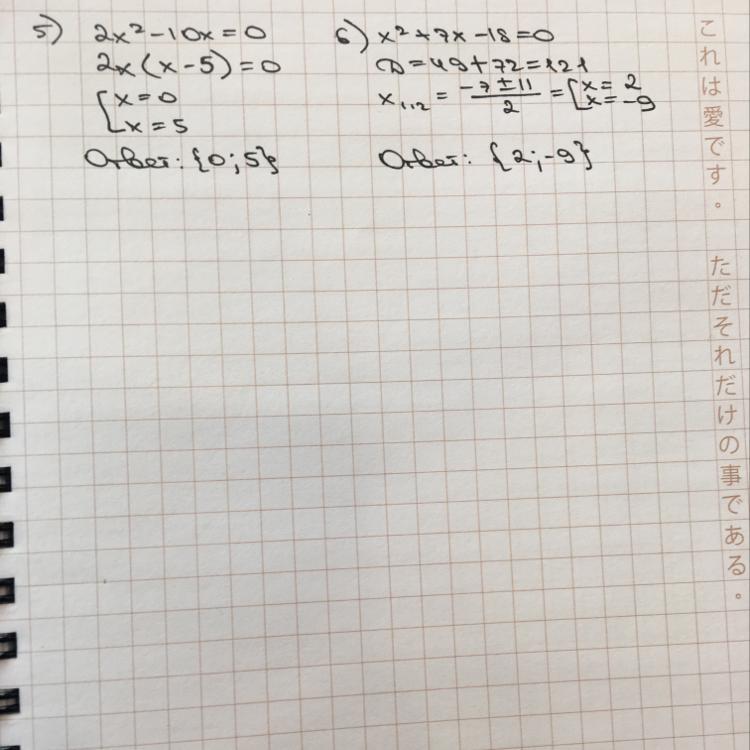 5) 2x² - 10x = 0
2x(x - 5) = 0
[x = 0
x = 5
Ответ: {0; 5}
6) x² + 7x - 18 = 0
D = 49 + 72 = 121
x₁,₂ = (-7 ± 11)/2 = [x = 2
x = -9
Ответ: {2; -9}
これは愛です。 ただそれだけの事である。